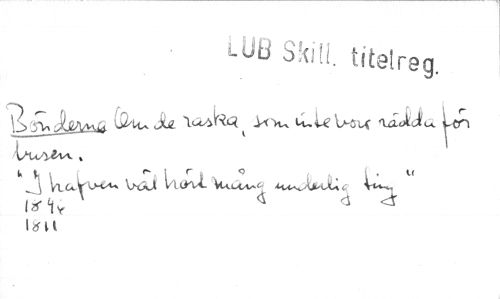 LUB Skill. titelreg.
Bönderna Om de raska, som inte voro rädda för
busen.
"I hafven väl hört mång underlig ting"
1844
1811